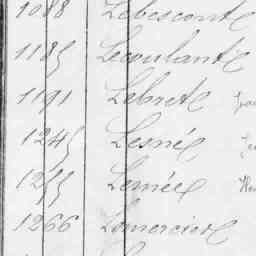 1088 Lebesconte
1185 Lecoulante
1191 Lebrete
1245 Lesnée
1255 Lemée
1266 Lemercier